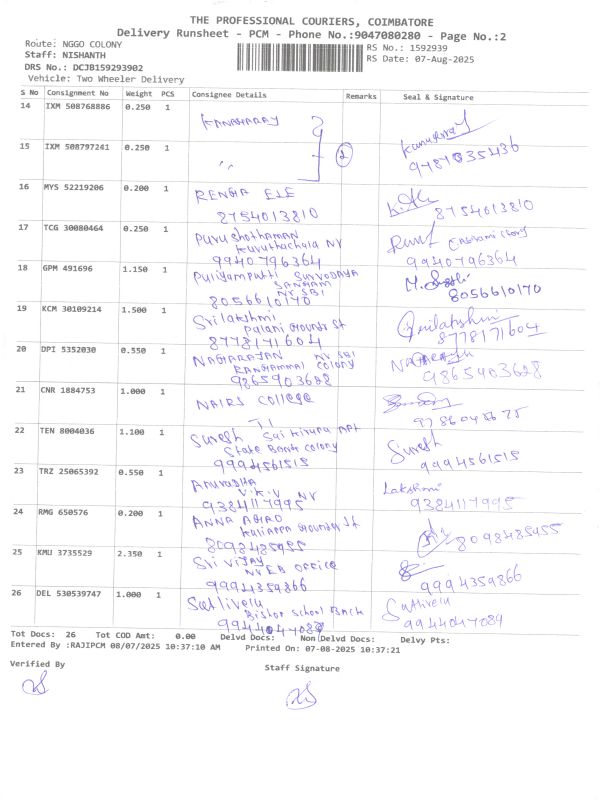 THE PROFESSIONAL COURIERS, COIMBATORE
Delivery Runsheet - PCM - Phone No.:9047080280 - Page No.:2
Route: NGGO COLONY
RS No.: 1592939
Staff: NISHANTH
RS Date: 07-Aug-2025
DRS No.: DCJB159293902
Vehicle: Two Wheeler Delivery
S No Consignment No Weight PCS Consignee Details Remarks Seal & Signature
14 IXM 508768886 0.250 1
KANAGARAJ
15 IXM 508797241 0.250 1
,, 2
16 MYS 52219206 0.200 1 RENGA ELE
8754013810 8754013810
17 TCG 30080464 0.250 1 Purushothaman
Kuruthachala NV
9940796364 9940796364
18 GPM 491696 1.150 1 Puliyampatti SURVODAYA
SANGAM
NR SBI
8056610170 8056610170
19 KCM 30109214 1.500 1 Srilakshmi Srilakshmi
Palani Gounder St
8778171604 8778171604
20 DPI 5352030 0.550 1 NAGARAJAN NR SBI
RANGAMMAL COLONY
9865903628 9865403628
21 CNR 1884753 1.000 1 NAIRS COLLEGE
22 TEN 8004036 1.100 1 Suresh Sai Kirupa APT Suresh
State Bank Colony
9994561515 9994561515
23 TRZ 25065392 0.550 1 Anuradha Lakshmi
V.K.V NR
9384117995 9384117995
24 RMG 650576 0.200 1 ANNA
8098485955 8098485955
25 KMU 3735529 2.350 1 Sri VIJAY
NVEB OFFICE
9994359866 9994359866
26 DEL 530539747 1.000 1 Sathivelu Sathivelu
Bishop School Back
9944047084 9944047084
Tot Docs: 26 Tot COD Amt: 0.00 Delvd Docs: Non Delvd Docs: Delvy Pts:
Entered By :RAJIPCM 08/07/2025 10:37:10 AM Printed On: 07-08-2025 10:37:21
Verified By Staff Signature